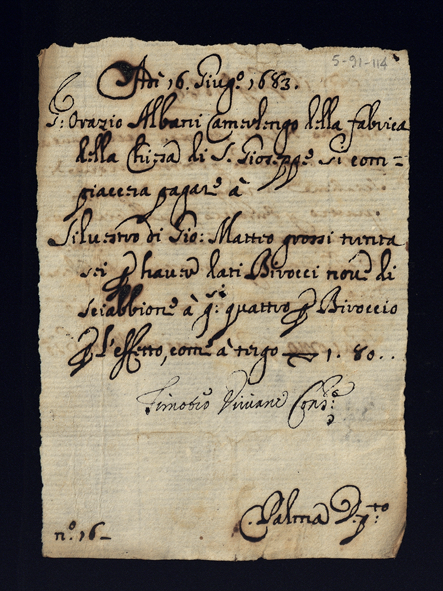 5-91-114
Adì 16. Giug.º 1683.
S: Orazio Albani Camerlengo della fabrica
della Chiesa di S. Gioseppe Si com=
piacerà pagare à
Silvestro di Gio: Matteo grossi trenta
sei p haver dati Birocci nove di
sciabbione à g.si quattro p Biroccio
p l'effetto, come à tergo 1. 80..
Timoteo Viviani Cons.re
C. Palma D.
n.º 16-